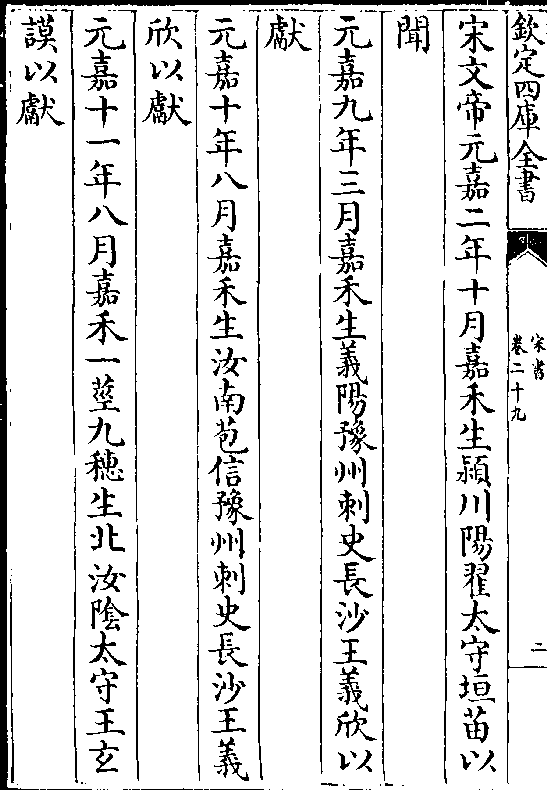 欽定四庫全書
宋書
卷二十九
二
宋文帝元嘉二年十月嘉禾生潁川陽翟太守垣苗以
聞
元嘉九年三月嘉禾生義陽豫州刺史長沙王義欣以
獻
元嘉十年八月嘉禾生汝南苞信豫州刺史長沙王義
欣以獻
元嘉十一年八月嘉禾一莖九穗生北汝陰太守王玄
謨以獻